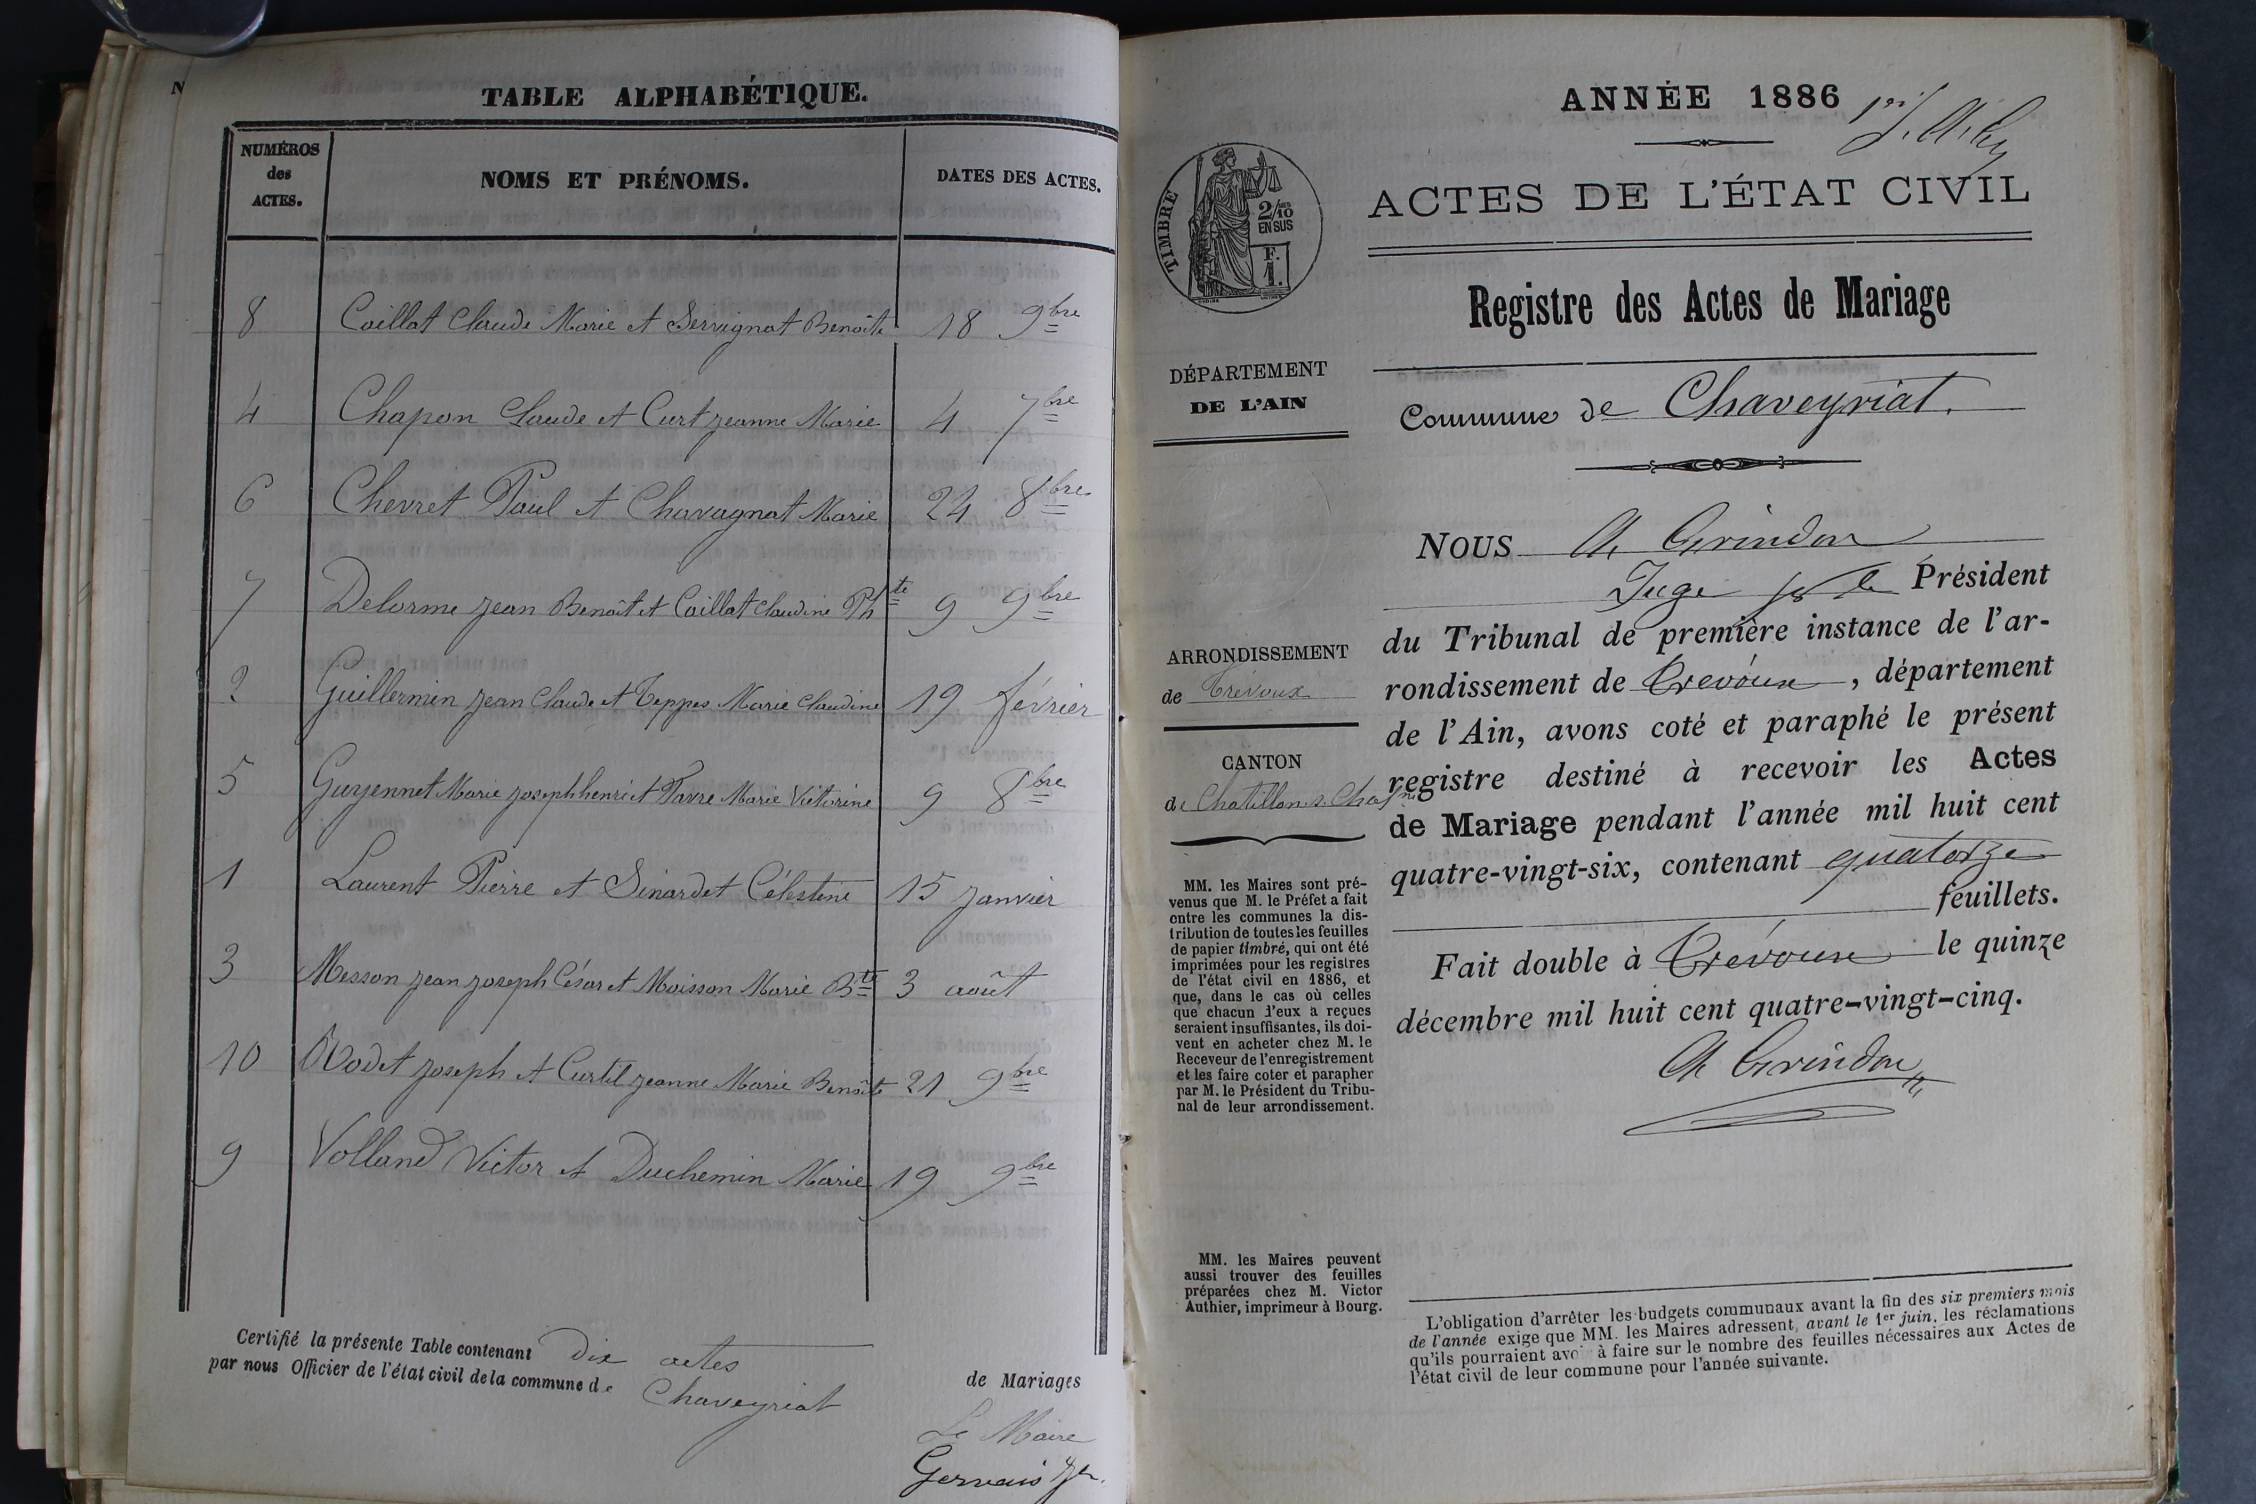 TABLE ALPHABÉTIQUE.
NUMÉROS
des
ACTES.
NOMS ET PRÉNOMS.
DATES DES ACTES.
8 Caillat Claude Marie et Servignat Benoîte 18 9bre
4 Chapon Claude et Curt Jeanne Marie 4 7bre
6 Chevret Paul et Chavagnat Marie 24 8bre
7 Delorme Jean Benoit et Caillat Claudine Phte 9 9bre
2 Guillermin Jean Claude et Teppes Marie Claudine 19 février
5 Guyennet Marie Joseph henri et Favre Marie Victorine 9 8bre
1 Laurent Pierre et Sinardet Célestine 15 Janvier
3 Messon Jean Joseph César et Moisson Marie Bte 3 août
10 Rodet Joseph et Curtil Jeanne Marie Benoîte 21 9bre
9 Volland Victor et Duchemin Marie 19 9bre
Certifié la présente Table contenant Dix actes
de Mariages
par nous Officier de l'état civil de la commune de Chaveyriat
Le Maire
Gervais
ANNÉE 1886
ACTES DE L'ÉTAT CIVIL
TIMBRE
2/10
EN SUS
F.
1.
Registre des Actes de Mariage
DÉPARTEMENT
DE L'AIN
Commune de Chaveyriat.
NOUS Ch Grindon
Juge Président
du Tribunal de première instance de l'ar-
rondissement de Trévoux, département
de l'Ain, avons coté et paraphé le présent
registre destiné à recevoir les Actes
de Mariage pendant l'année mil huit cent
quatre-vingt-six, contenant quatorze
feuillets.
Fait double à Trévoux le quinze
décembre mil huit cent quatre-vingt-cinq.
Ch Grindon
ARRONDISSEMENT
de Trévoux
CANTON
de Chatillon s. Chalne
MM. les Maires sont pré-
venus que M. le Préfet a fait
entre les communes la dis-
tribution de toutes les feuilles
de papier timbré, qui ont été
imprimées pour les registres
de l'état civil en 1886, et
que, dans le cas où celles
que chacun d'eux a reçues
seraient insuffisantes, ils doi-
vent en acheter chez M. le
Receveur de l'enregistrement
et les faire coter et parapher
par M. le Président du Tribu-
nal de leur arrondissement.
MM. les Maires peuvent
aussi trouver des feuilles
préparées chez M. Victor
Authier, imprimeur à Bourg.
L'obligation d'arrêter les budgets communaux avant la fin des six premiers mois
de l'année exige que MM. les Maires adressent, avant le 1er juin, les réclamations
qu'ils pourraient avoir à faire sur le nombre des feuilles nécessaires aux Actes de
l'état civil de leur commune pour l'année suivante.